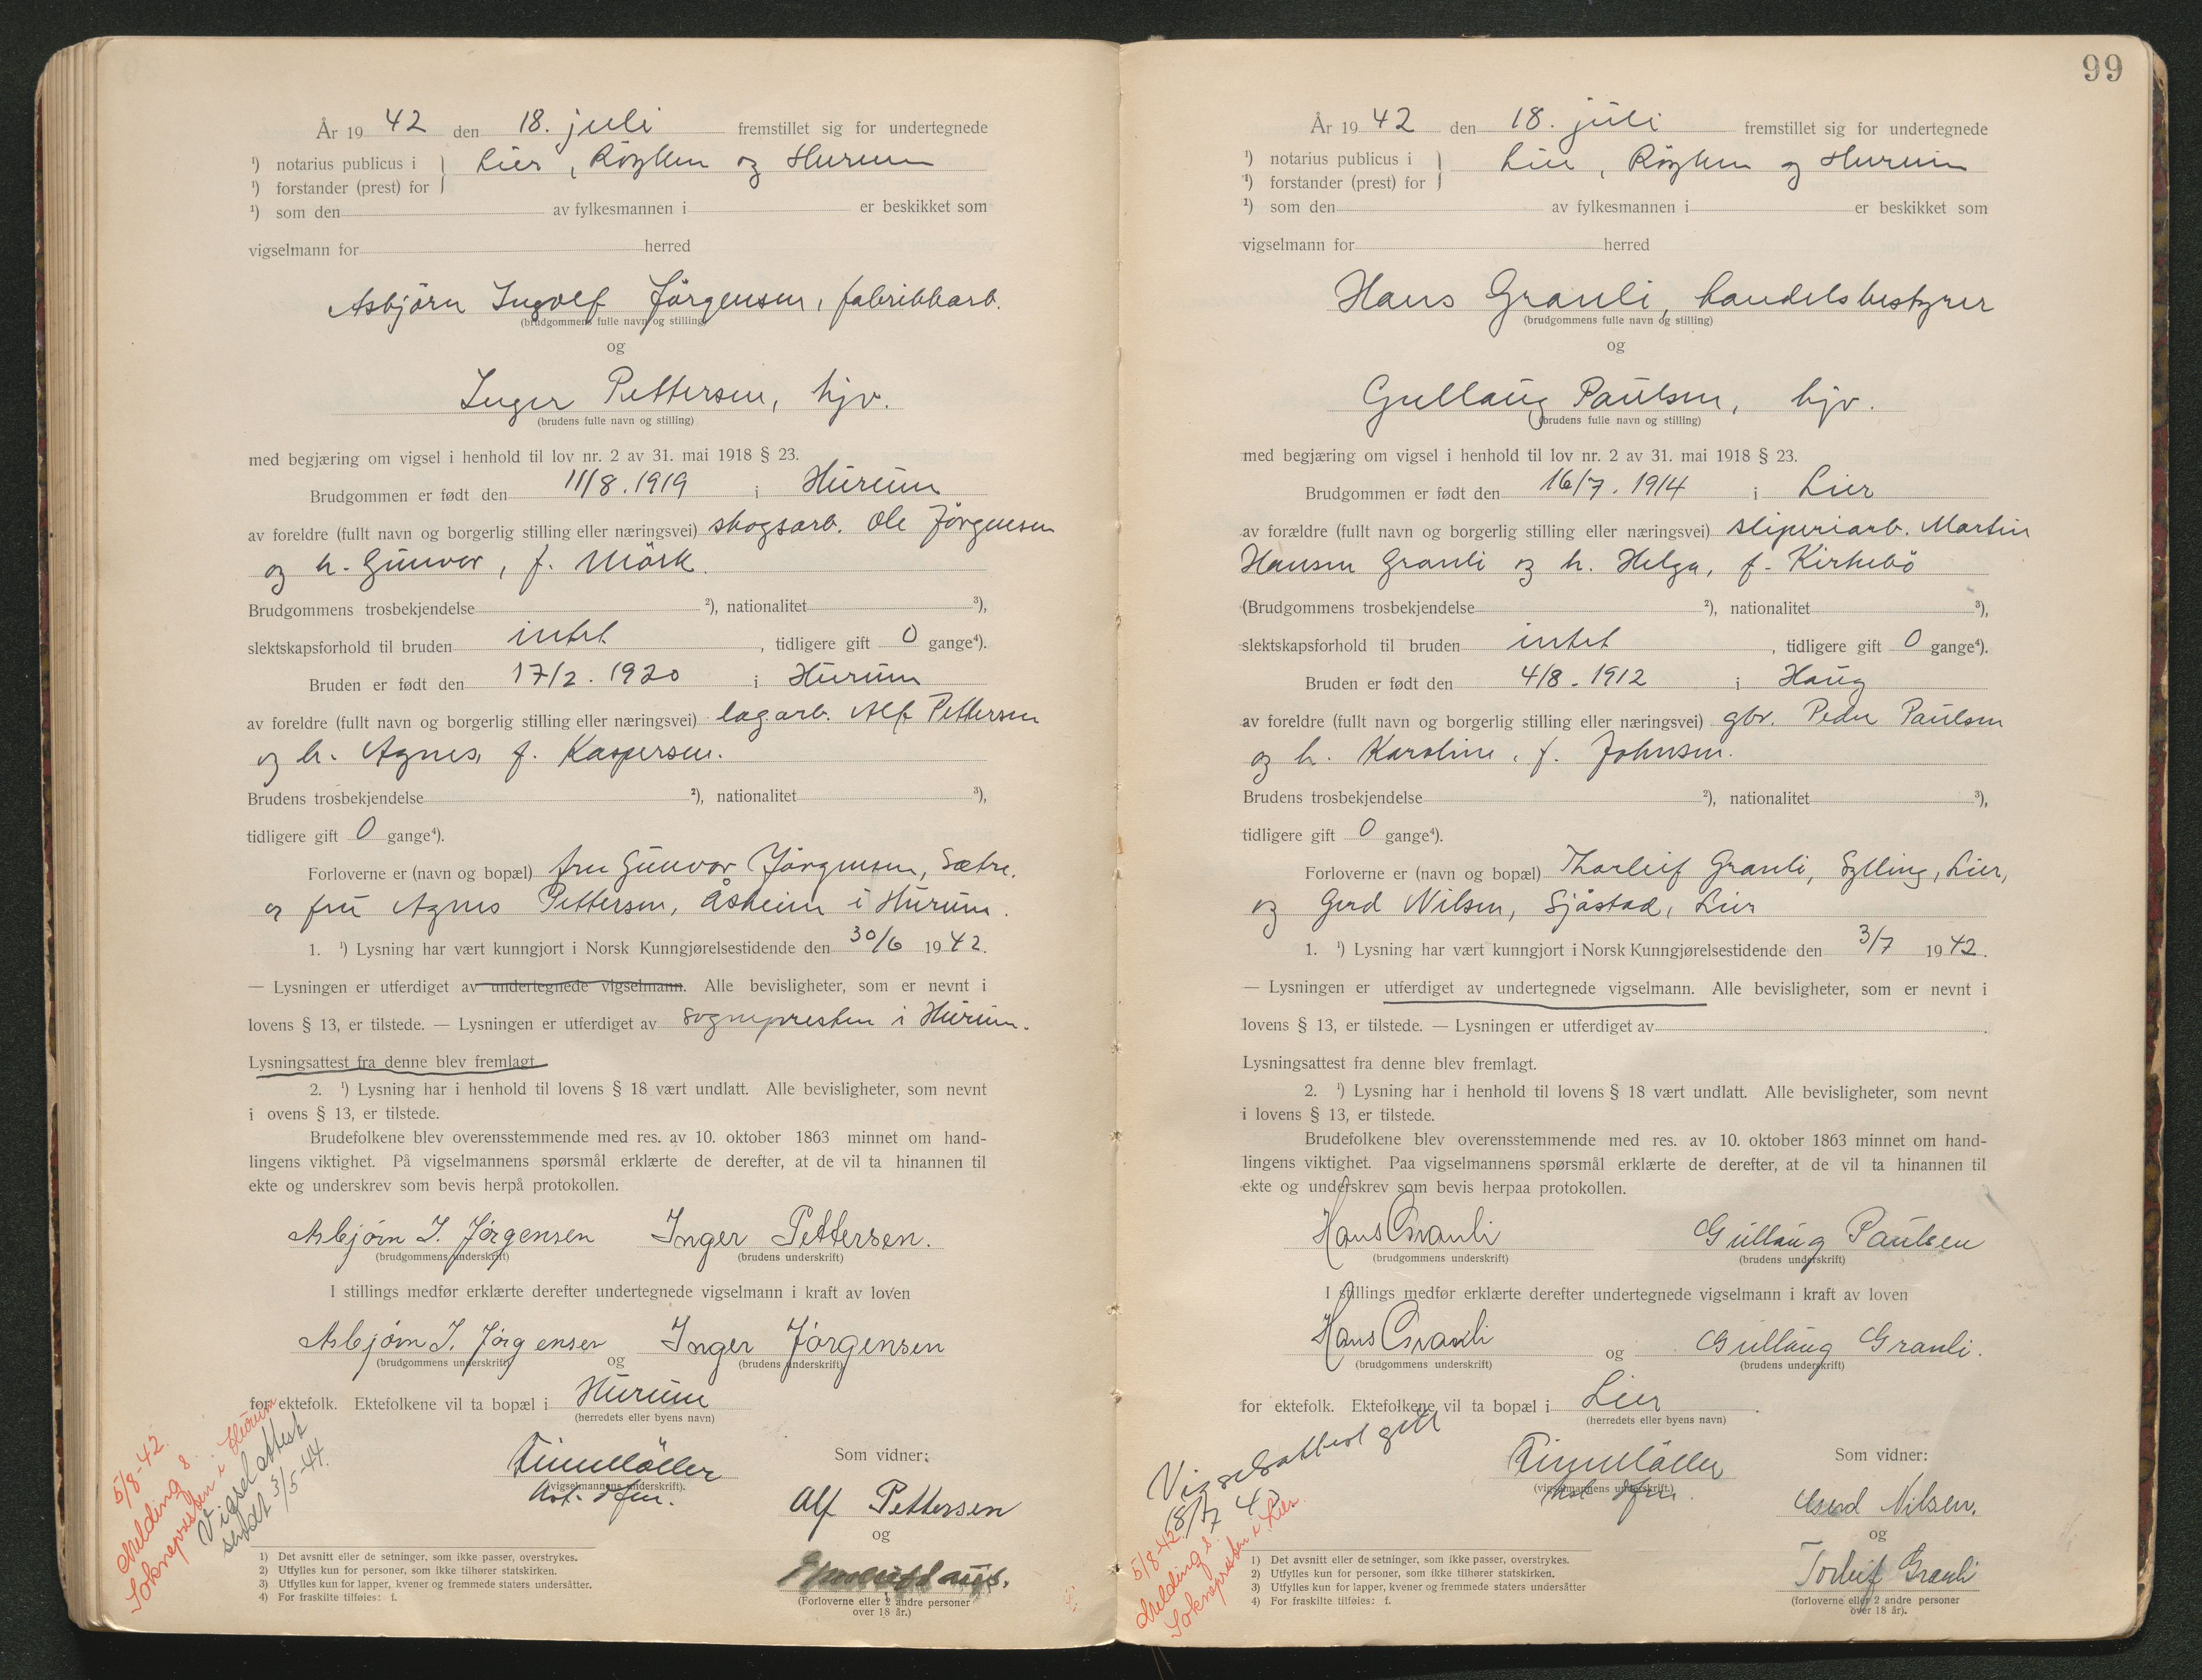 År 19 42 den 18. juli fremstillet sig for undertegnede
¹) notarius publicus i } Lier, Røyken og Hurum
¹) forstander (prest) for
¹) som den av fylkesmannen i er beskikket som
vigselmann for herred
Asbjörn Ingolf Jörgensen, fabrikkarb.
(brudgommens fulle navn og stilling)
og
Inger Pettersen, hjv.
(brudens fulle navn og stilling)
med begjæring om vigsel i henhold til lov nr. 2 av 31. mai 1918 § 23.
Brudgommen er født den 11/8.1919 i Hurum
av foreldre (fullt navn og borgerlig stilling eller næringsvei) skogsarb. Ole Jörgensen
og h. Gunvor, f. Mörk.
Brudgommens trosbekjendelse ²), nationalitet ³),
slektskapsforhold til bruden intet, tidligere gift 0 gange⁴).
Bruden er født den 17/2.1920 i Hurum
av foreldre (fullt navn og borgerlig stilling eller næringsvei) lagarb. Alf Pettersen
og h. Agnes, f. Kaspersen.
Brudens trosbekjendelse ²), nationalitet ³),
tidligere gift 0 gange⁴).
Forloverne er (navn og bopæl) fru Gunvor Jörgensen, Sætre.
og fru Agnes Pettersen, Åsheim i Hurum.
1. ¹) Lysning har vært kunngjort i Norsk Kunngjørelsestidende den 30/6 1942.
— Lysningen er utferdiget av undertegnede vigselmann. Alle bevisligheter, som er nevnt i
lovens § 13, er tilstede. — Lysningen er utferdiget av sognepresten i Hurum.
Lysningsattest fra denne blev fremlagt.
2. ¹) Lysning har i henhold til lovens § 18 vært undlatt. Alle bevisligheter, som nevnt
i ovens § 13, er tilstede.
Brudefolkene blev overensstemmende med res. av 10. oktober 1863 minnet om hand-
lingens viktighet. På vigselmannens spørsmål erklærte de derefter, at de vil ta hinannen til
ekte og underskrev som bevis herpå protokollen.
Asbjørn I. Jørgensen Inger Pettersen.
(brudgommens underskrift) (brudens underskrift)
I stillings medfør erklærte derefter undertegnede vigselmann i kraft av loven
Asbjørn I. Jørgensen og Inger Jørgensen
(brudgommens underskrift) (brudens underskrift)
for ektefolk. Ektefolkene vil ta bopæl i Hurum
(herredets eller byens navn)
Som vidner:
(vigselmannens underskrift).
Alf Pettersen
og
(Forloverne eller 2 andre personer
over 18 år.)
5/8-42.
Melding s.
Soknepresten i Hurum
Vigselattest
sendt 3/5-44.
1) Det avsnitt eller de setninger, som ikke passer, overstrykes.
2) Utfylles kun for personer, som ikke tilhører statskirken.
3) Utfylles kun for lapper, kvener og fremmede staters undersåtter.
4) For fraskilte tilføies: f.
99
År 19 42 den 18. juli fremstillet sig for undertegnede
¹) notarius publicus i } Lier, Røyken og Hurum
¹) forstander (prest) for
¹) som den av fylkesmannen i er beskikket som
vigselmann for herred
Hans Granli, handelsbestyrer
(brudgommens fulle navn og stilling)
og
Gullaug Paulsen, hjv.
(brudens fulle navn og stilling)
med begjæring om vigsel i henhold til lov nr. 2 av 31. mai 1918 § 23.
Brudgommen er født den 16/7.1914 i Lier
av forældre (fullt navn og borgerlig stilling eller næringsvei) sliperiarb. Martin
Hansen Granli og h. Helga, f. Kirkebö
(Brudgommens trosbekjendelse ²), nationalitet ³),
slektskapsforhold til bruden intet, tidligere gift 0 gange⁴).
Bruden er født den 4/8.1912 i Haug
av foreldre (fullt navn og borgerlig stilling eller næringsvei) gbr. Peder Paulsen
og h. Karoline, f. Johnsen.
Brudens trosbekjendelse ²), nationalitet ³),
tidligere gift 0 gange⁴).
Forloverne er (navn og bopæl) Thorleif Granli, Sylling, Lier,
og Gerd Nilsen, Sjåstad, Lier
1. ¹) Lysning har vært kunngjort i Norsk Kunngjørelsestidende den 3/7 1942.
— Lysningen er utferdiget av undertegnede vigselmann. Alle bevisligheter, som er nevnt i
lovens § 13, er tilstede. — Lysningen er utferdiget av .
Lysningsattest fra denne blev fremlagt.
2. ¹) Lysning har i henhold til lovens § 18 vært undlatt. Alle bevisligheter, som nevnt
i lovens § 13, er tilstede.
Brudefolkene blev overensstemmende med res. av 10. oktober 1863 minnet om hand-
lingens viktighet. Paa vigselmannens spørsmål erklærte de derefter, at de vil ta hinannen til
ekte og underskrev som bevis herpaa protokollen.
Hans Granli Gullaug Paulsen
(brudgommens underskrift) (brudens underskrift)
I stillings medfør erklærte derefter undertegnede vigselmann i kraft av loven
Hans Granli og Gullaug Granli.
(brudgommens underskrift) (brudens underskrift)
for ektefolk. Ektefolkene vil ta bopæl i Lier
(herredets eller byens navn)
Som vidner:
(vigselmannens underskrift.)
Gerd Nilsen.
og
Torleif Granli
(forloverne eller 2 andre personer
over 18 år).
Vigselsattest gitt
18/7 42
5/8-42.
Melding s.
Soknepresten i Lier.
1) Det avsnitt eller de setninger, som ikke passer, overstrykes.
2) Utfylles kun for personer, som ikke tilhører statskirken.
3) Utfylles kun for lapper, kvener og fremmede staters undersåtter
4) For fraskilte tilføies: f.